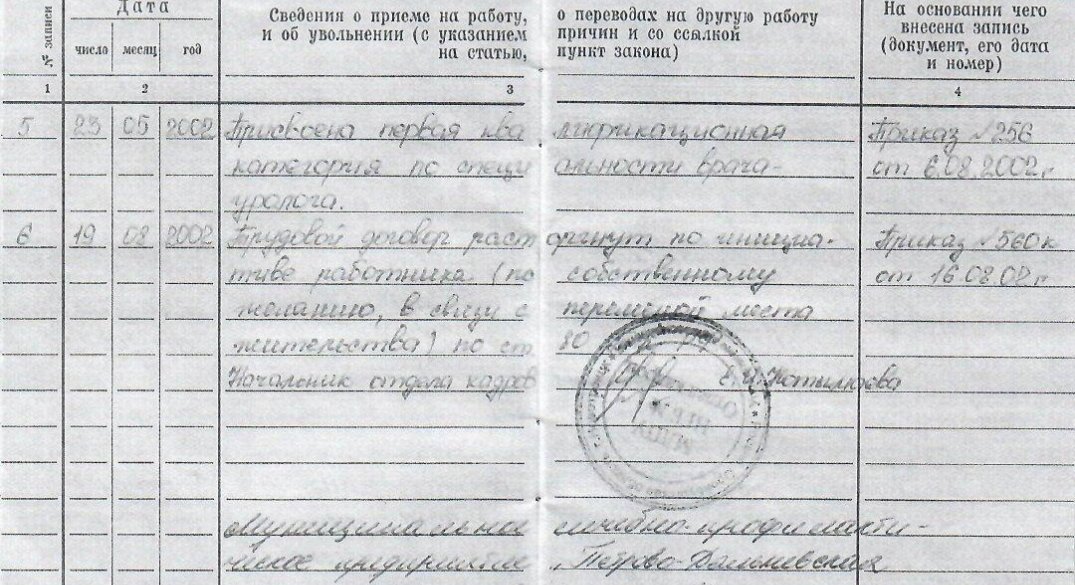 № записи
Дата
число месяц год
Сведения о приеме на работу, о переводах на другую работу
и об увольнении (с указанием причин и со ссылкой
на статью, пункт закона)
На основании чего
внесена запись
(документ, его дата
и номер)
1 2 3 4
5 23 05 2002 Присвоена первая квалификационная Приказ №256
категория по специальности врача- от 6.08.2002г
уролога.
6 19 08 2002 Трудовой договор расторгнут по инициа- Приказ №560к
тиве работника (по собственному от 16.08.02г
желанию, в связи с переменой места
жительства) по ст. 80
Начальник отдела кадров
Муниципальное лечебно-профилакти-
ческое предприятие "Петрово-Дальневская